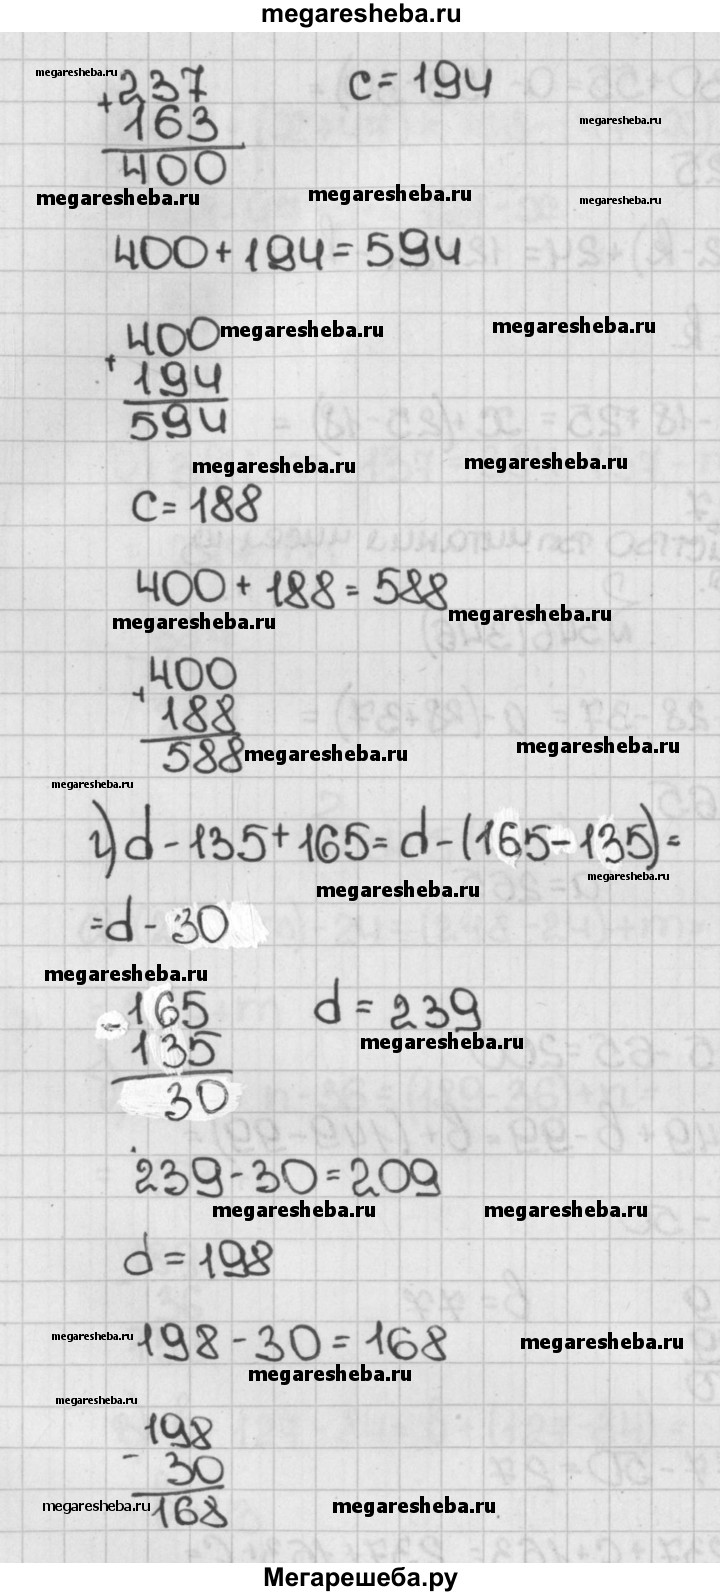 megaresheba.ru
megaresheba.ru
+237
163
400
c = 194
megaresheba.ru
megaresheba.ru
megaresheba.ru
megaresheba.ru
400 + 194 = 594
400
+ 194
594
megaresheba.ru
megaresheba.ru
megaresheba.ru
megaresheba.ru
c = 188
400 + 188 = 588
megaresheba.ru
megaresheba.ru
400
+ 188
588
megaresheba.ru
megaresheba.ru
megaresheba.ru
г) d - 135 + 165 = d - (165 - 135) =
megaresheba.ru
megaresheba.ru
= d - 30
megaresheba.ru
- 165
135
30
d = 239
megaresheba.ru
239 - 30 = 209
megaresheba.ru
megaresheba.ru
d = 198
megaresheba.ru
198 - 30 = 168
megaresheba.ru
megaresheba.ru
megaresheba.ru
198
- 30
168
megaresheba.ru
megaresheba.ru
Мегарешеба.ру